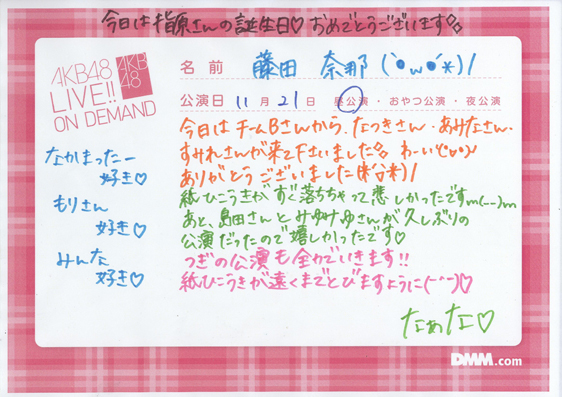 今日は指原さんの誕生日♡おめでとうございます
AKB48
LIVE!!
ON DEMAND
AKB
48
名前 藤田 奈那(`・ω・´*)ﾉ
公演日 11月21日 昼公演・おやつ公演・夜公演
今日はチームBさんから、なつきさん・あみなさん・
すみれさんが来て下さいました。わーい
ありがとうございました
紙ひこうきがすぐ落ちちゃって悲しかったですm(--)m
あと、島田さんとみゆみゆさんが久しぶりの
公演だったので嬉しかったです♡
つぎの公演も全力でいきます!!
紙ひこうきが遠くまでとびますように
なぁな♡
なかまったー
好き♡
もりさん
好き♡
みんな
好き♡
DMM.com